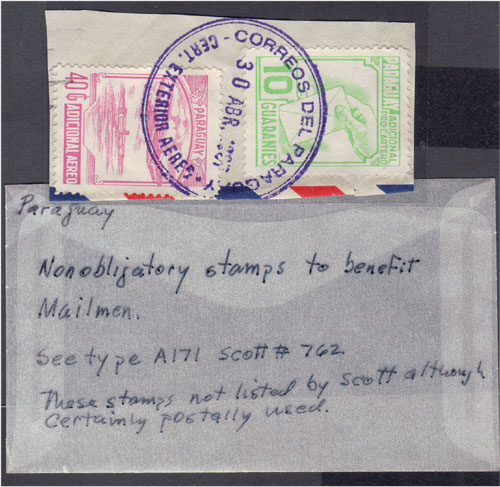 CORREOS DEL PARAG
30 ABR.
CERT. EXTERIOR AEREO
40 G
ADICIONAL AEREO
PARAGUAY
10
GUARANIES
PARAGUAY
ADICIONAL
PRO CARTERO
Paraguay
Nonobligatory stamps to benefit
Mailmen.
See type A171 Scott # 762
These stamps not listed by Scott although
Certainly postally used.